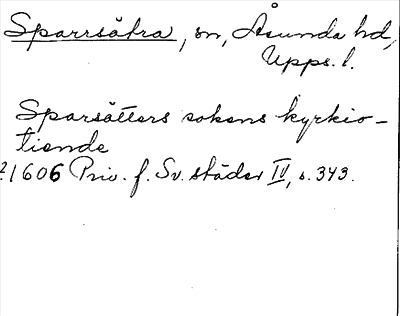 Sparrsätra, sn, Åsunda hd,
Upps. l.
Sparsätters sokens kyrkio-
tiende
1606 Priv. f. Sv. städer IV, s. 343.